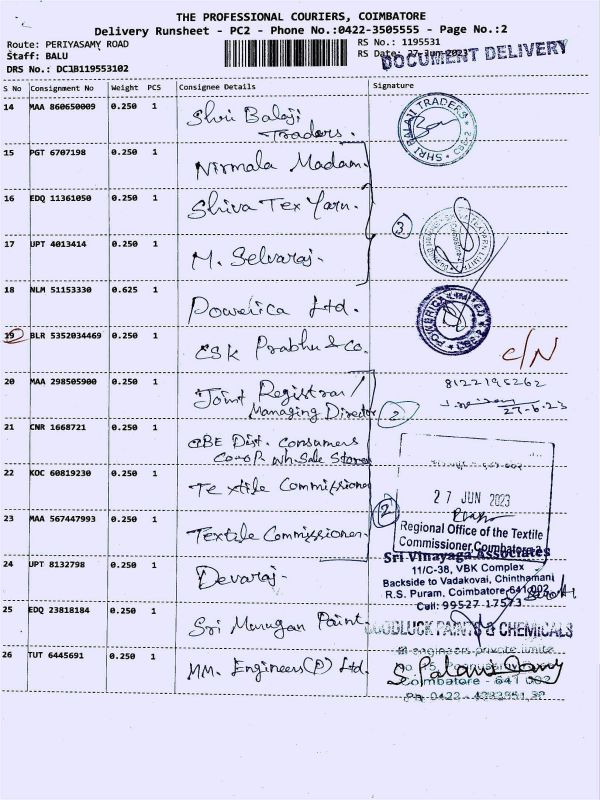 THE PROFESSIONAL COURIERS, COIMBATORE
Delivery Runsheet - PC2 - Phone No.:0422-3505555 - Page No.:2
Route: PERIYASAMY ROAD
RS No.: 1195531
Staff: BALU
RS Date: 27-Jun-2023
DOCUMENT DELIVERY
DRS No.: DC1B119553102
S No Consignment No Weight PCS Consignee Details Signature
14 MAA 860650009 0.250 1 Shri Balaji
Traders.
SHRI BALAJI TRADERS
CBE-2
15 PGT 6707198 0.250 1 Nirmala Madam
16 EDQ 11361050 0.250 1 Shiva Tex Yarn.
3
17 UPT 4013414 0.250 1 M. Selvaraj.
18 NLM 51153330 0.625 1 Powerica Ltd.
POWERICA LIMITED
CBE-2
19 BLR 5352034469 0.250 1 CSK Prabhu & Co.
C/N
20 MAA 298505900 0.250 1 Joint Registrar/
Managing Director
2
8122195262
27-6-23
21 CNR 1668721 0.250 1 CBE Dist. Consumers
Co-oP. Wh. Sale Stores
22 KOC 60819230 0.250 1 Textile Commissioner
27 JUN 2023
2
23 MAA 567447993 0.250 1 Textile Commissioner.
Regional Office of the Textile
Commissioner, Coimbatore-2
24 UPT 8132798 0.250 1 Devaraj.
Sri Vinayaga Associates
11/C-38, VBK Complex
Backside to Vadakovai, Chinthamani
R.S. Puram, Coimbatore-641 002
Cell: 99527 17573
25 EDQ 23818184 0.250 1 Sri Murugan Paint
GOODLUCK PAINTS & CHEMICALS
26 TUT 6445691 0.250 1 MM. Engineers(P) Ltd.
engineers private limite
S. Palani Samy
Coimbatore - 641 002